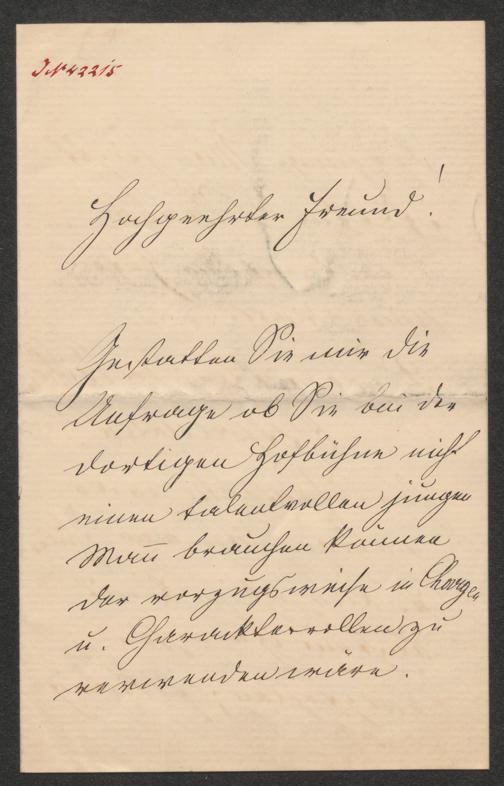 J N 42215
Hochgeehrter Freund!
Gestatten Sie mir die
Anfrage ob Sie bei der
dortigen Hofbühne nicht
einen talentvollen jungen
Man̅ brauchen können
der vorzugsweise in Chargen
u. Charakterrollen zu
verwenden wäre.